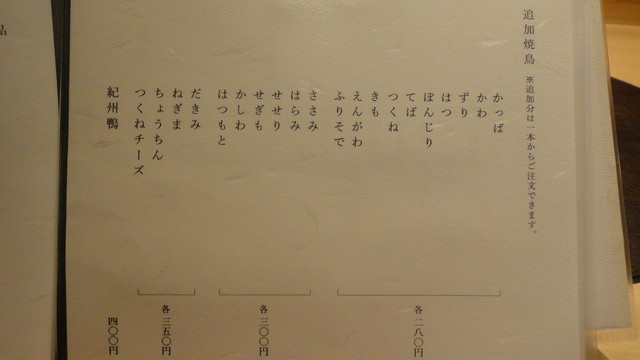 追加焼鳥 ※追加分は一本からご注文できます。
かっぱ
かわ
ずり
はつ
ぼんじり
てば
つくね
きも
えんがわ
ふりそで
各二八〇円
ささみ
はらみ
せせり
せぎも
かしわ
はつもと
各三〇〇円
だきみ
ねぎま
ちょうちん
つくねチーズ
各三五〇円
紀州鴨
四〇〇円
品